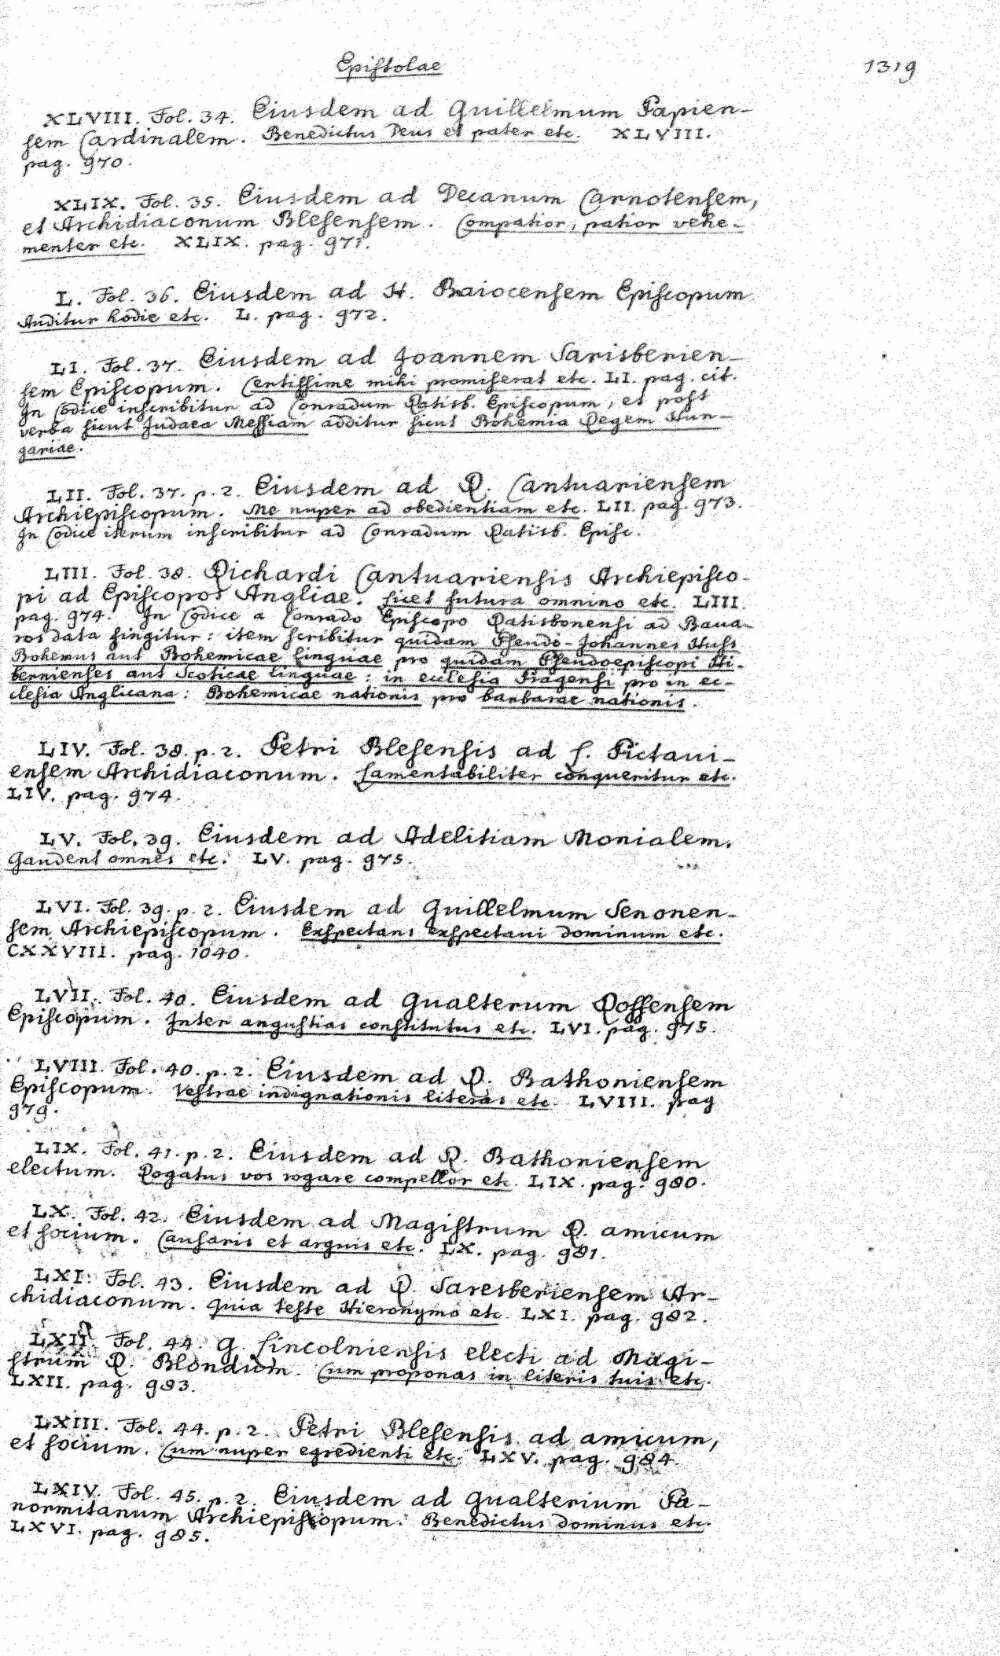 Epistolae 1319
XLVIII. Fol. 34. Eiusdem ad Guillelmum Papien-
sem Cardinalem. Benedictus Deus et pater etc. XLVIII.
pag. 970.
XLIX. Fol. 35. Eiusdem ad Decanum Carnotensem,
et Archidiaconum Blesensem. Compatior, patior vehe-
menter etc. XLIX. pag. 971.
L. Fol. 36. Eiusdem ad H. Baiocensem Episcopum
Auditur hodie etc. L. pag. 972.
LI. Fol. 37. Eiusdem ad Joannem Sarisberien-
sem Episcopum. Certissime mihi promiserat etc. LI. pag. cit.
In Codice inscribitur ad Conradum Ratisb. Episcopum, et post
verba sicut Judaea Messiam additur sicut Bohemia Regem Hun-
gariae.
LII. Fol. 37. p. 2. Eiusdem ad R. Cantuariensem
Archiepiscopum. Me nuper ad obedientiam etc. LII. pag. 973.
In Codice iterum inscribitur ad Conradum Ratisb. Episc.
LIII. Fol. 38. Richardi Cantuariensis Archiepisco-
pi ad Episcopos Angliae. Licet futura omnino etc. LIII.
pag. 974. In Codice a Conrado Episcopo Ratisbonensi ad Baua-
ros data fingitur: item scribitur quidam Pseudo-Johannes Huss
Bohemus aut Bohemicae linguae pro quidam Pseudoepiscopi Hi-
bernienses aut Scoticae linguae: in ecclesia Pragensi pro in ec-
clesia Anglicana: Bohemicae nationis pro barbarae nationis.
LIV. Fol. 38. p. 2. Petri Blesensis ad S. Pictaui-
ensem Archidiaconum. Lamentabiliter conqueritur etc.
LIV. pag. 974.
LV. Fol. 39. Eiusdem ad Adelitiam Monialem.
Gaudent omnes etc. LV. pag. 975.
LVI. Fol. 39. p. 2. Eiusdem ad Guillelmum Senonen-
sem Archiepiscopum. Exspectans exspectaui dominum etc.
CXXVIII. pag. 1040.
LVII. Fol. 40. Eiusdem ad Gualterum Rossensem
Episcopum. Inter angustias constitutus etc. LVI. pag. 975.
LVIII. Fol. 40. p. 2. Eiusdem ad R. Bathoniensem
Episcopum. Vestrae indignationis literas etc. LVIII. pag
979.
LIX. Fol. 41. p. 2. Eiusdem ad R. Bathoniensem
electum. Rogatus vos rogare compellor etc. LIX. pag. 980.
LX. Fol. 42. Eiusdem ad Magistrum R. amicum
et socium. Causaris et arguis etc. LX. pag. 981.
LXI. Fol. 43. Eiusdem ad R. Saresberiensem Ar-
chidiaconum. Quia teste Hieronymo etc. LXI. pag. 982.
LXII. Fol. 44. G. Lincolniensis electi ad Magi-
strum R. Blondum. Cum proponas in literis tuis etc.
LXII. pag. 983.
LXIII. Fol. 44. p. 2. Petri Blesensis ad amicum,
et socium. Cum nuper egredienti etc. LXV. pag. 984.
LXIV. Fol. 45. p. 2. Eiusdem ad Gualterium Pa-
normitanum Archiepiscopum. Benedictus dominus etc.
LXVI. pag. 985.